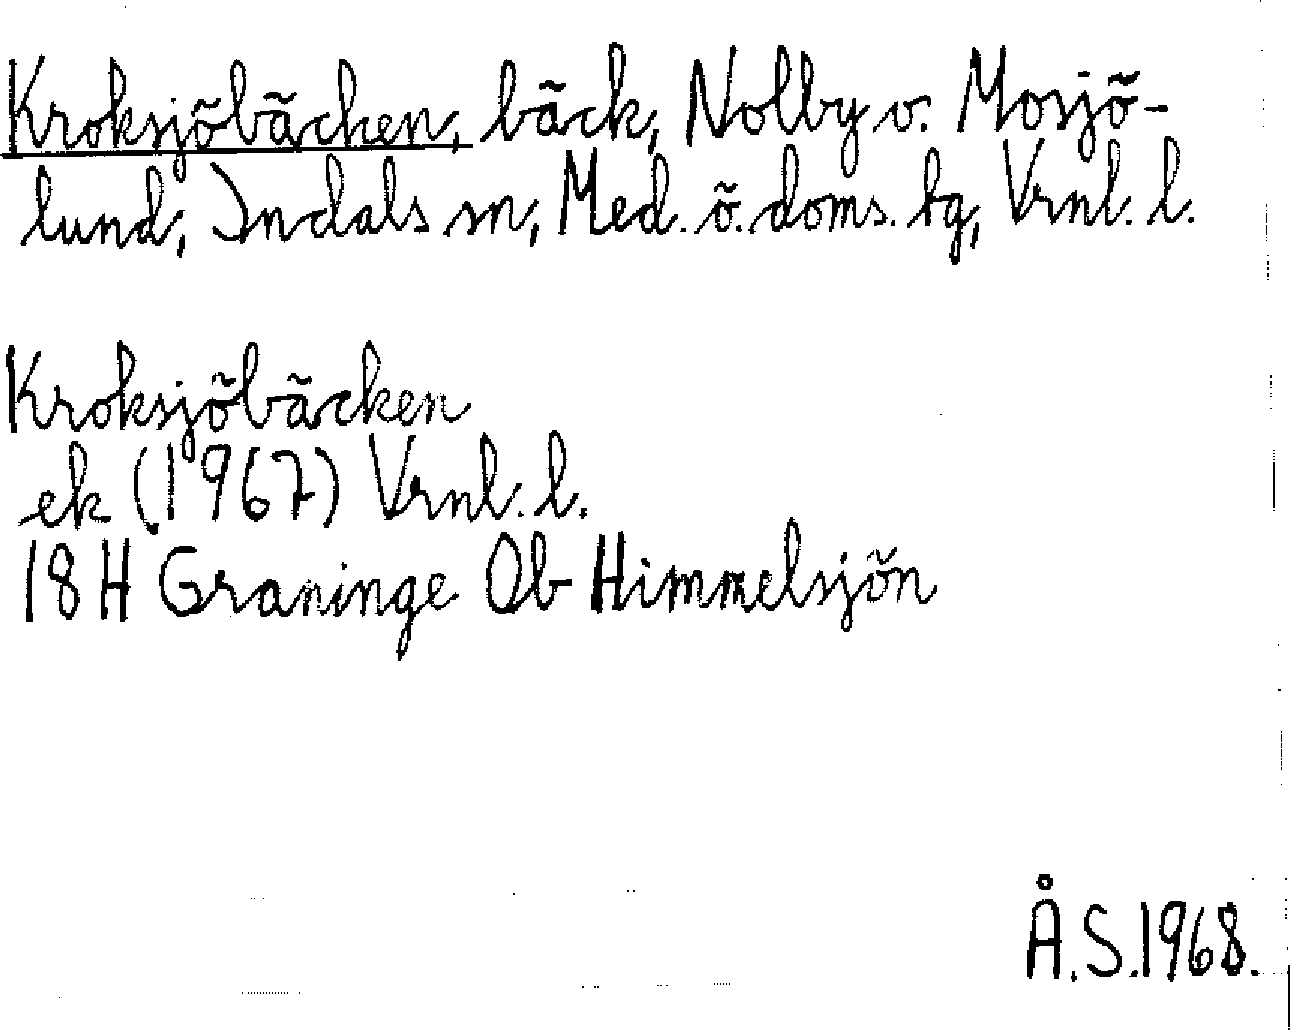 Kroksjöbäcken, bäck, Nolby v. Mosjö-
lund, Indals sn, Med. ö. doms. tg, Vrnl. l.
Kroksjöbäcken
ek (1967) Vrnl. l.
18 H Graninge Ob Himmelsjön
Å.S.1968.